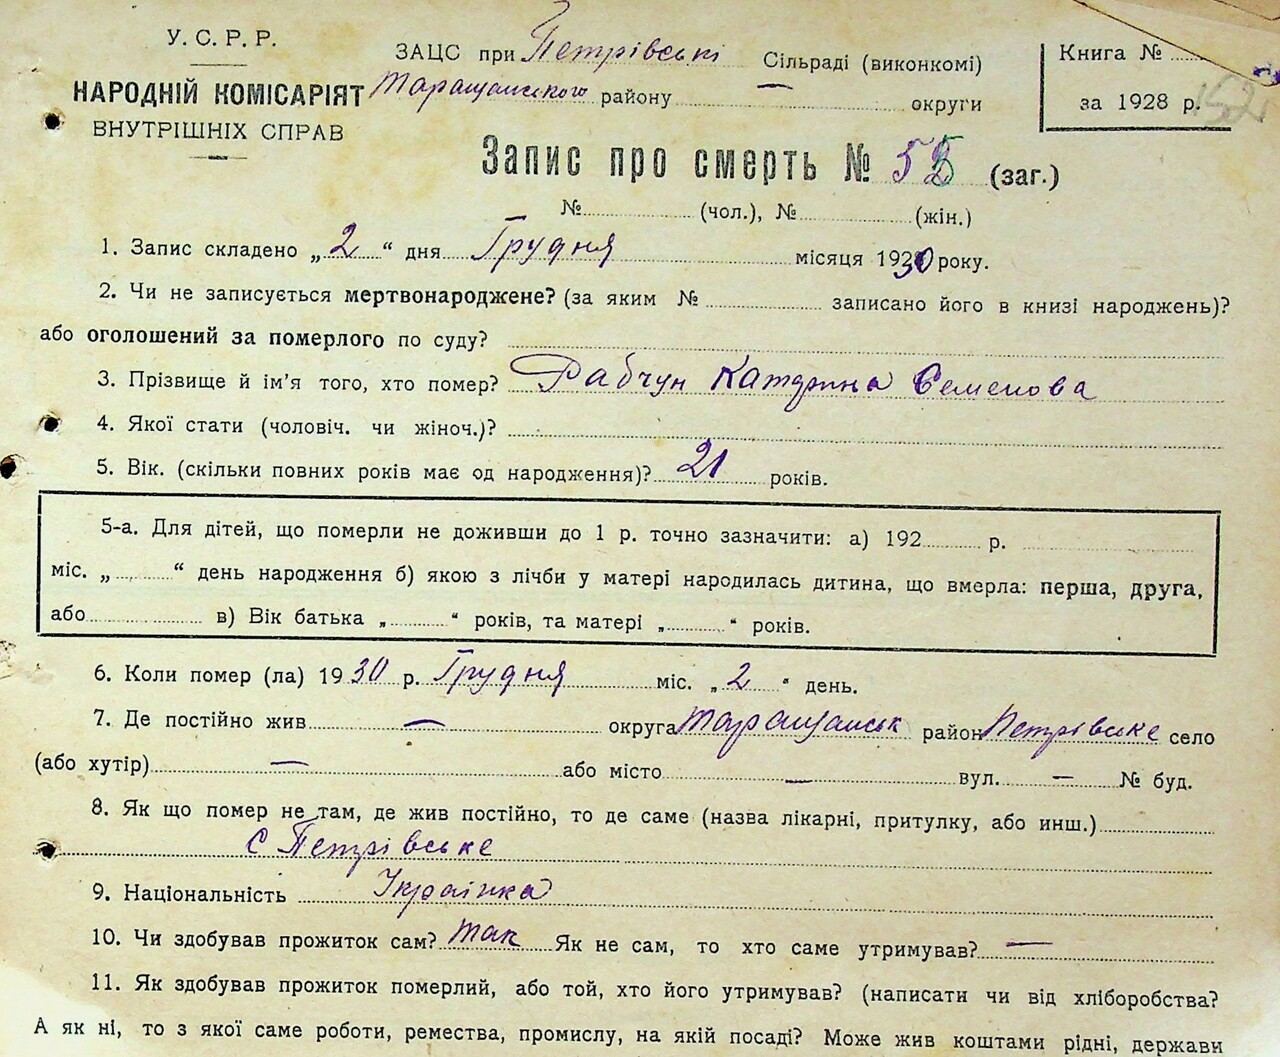 У. С. Р. Р.
НАРОДНІЙ КОМІСАРІЯТ
ВНУТРІШНІХ СПРАВ
ЗАЦС при Петрівські Сільраді (виконкомі)
Таращанського району — округи
Книга №
за 1928 р.
Запис про смерть № 55 (заг.)
№ (чол.), № (жін.)
1. Запис складено „2“ дня Грудня місяця 1930 року.
2. Чи не записується мертвонароджене? (за яким № записано його в книзі народжень)?
або оголошений за померлого по суду?
3. Прізвище й ім’я того, хто помер? Рабчун Катерина Семенова
4. Якої стати (чоловіч. чи жіноч.)?
5. Вік. (скільки повних років має од народження)? 21 років.
5-а. Для дітей, що померли не доживши до 1 р. точно зазначити: а) 192 р.
міс. „ “ день народження б) якою з лічби у матері народилась дитина, що вмерла: перша, друга,
або в) Вік батька „ “ років, та матері „ “ років.
6. Коли помер (ла) 1930 р. Грудня міс. „2“ день.
7. Де постійно жив — округа Таращанськ район Петрівське село
(або хутір) — або місто — вул. — № буд.
8. Як що помер не там, де жив постійно, то де саме (назва лікарні, притулку, або инш.)
с Петрівське
9. Національність Українка
10. Чи здобував прожиток сам? так Як не сам, то хто саме утримував? —
11. Як здобував прожиток померлий, або той, хто його утримував? (написати чи від хліборобства?
А як ні, то з якої саме роботи, ремества, промислу, на якій посаді? Може жив коштами рідні, держави